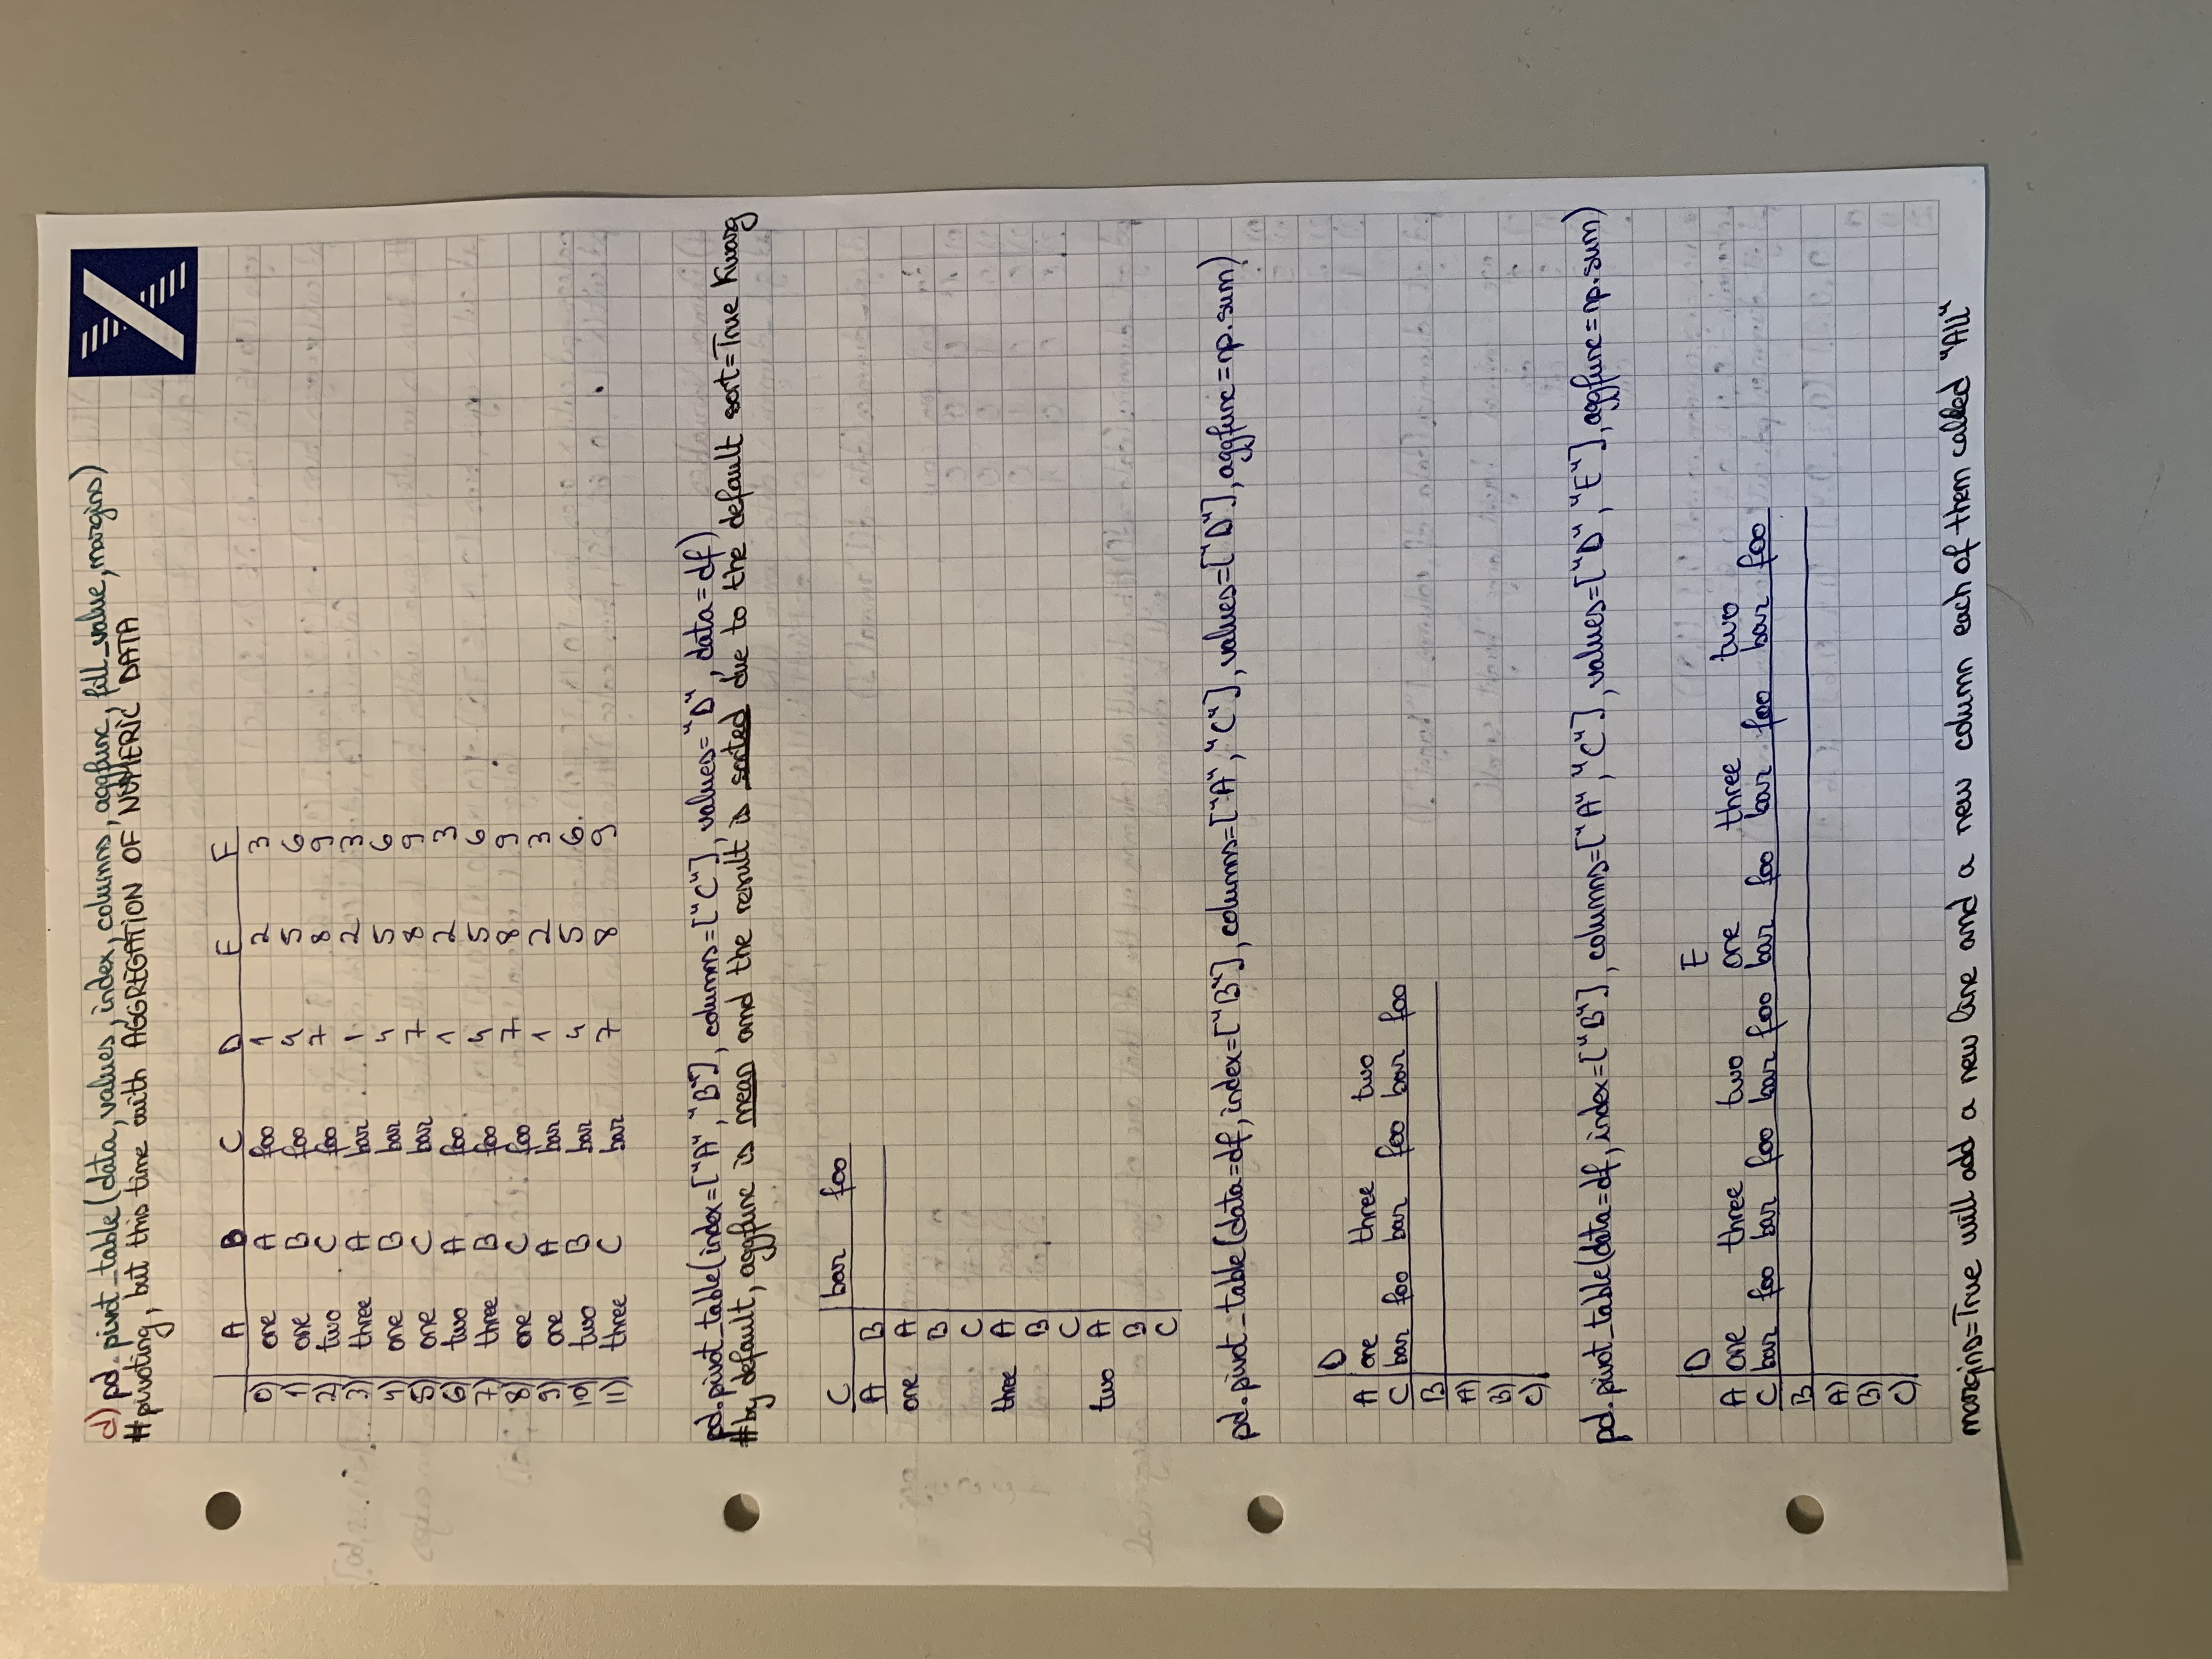 d) pd.pivot_table(data, values, index, columns, aggfunc, fill_value, margins)
# pivoting, but this time with AGGREGATION OF NUMERIC DATA
A B C D E F
0) one A foo 1 2 3
1) one B foo 4 5 6
2) two C foo 7 8 9
3) three A bar 1 2 3
4) one B bar 4 5 6
5) one C bar 7 8 9
6) two A foo 1 2 3
7) three B foo 4 5 6
8) one C foo 7 8 9
9) one A bar 1 2 3
10) two B bar 4 5 6
11) three C bar 7 8 9
pd.pivot_table(index=["A","B"], columns=["C"], values="D", data=df)
# by default, aggfunc is mean and the result is sorted due to the default sort=True Kwarg
C bar foo
A B
one A
B
C
three A
B
C
two A
B
C
pd.pivot_table(data=df, index=["B"], columns=["A","C"], values=["D"], aggfunc=np.sum)
D
A one three two
C bar foo bar foo bar foo
B
A)
B)
C)
pd.pivot_table(data=df, index=["B"], columns=["A","C"], values=["D","E"], aggfunc=np.sum)
D E
A one three two one three two
C bar foo bar foo bar foo bar foo bar foo bar foo
B
A)
B)
C)
margins=True will add a new line and a new column each of them called "All"